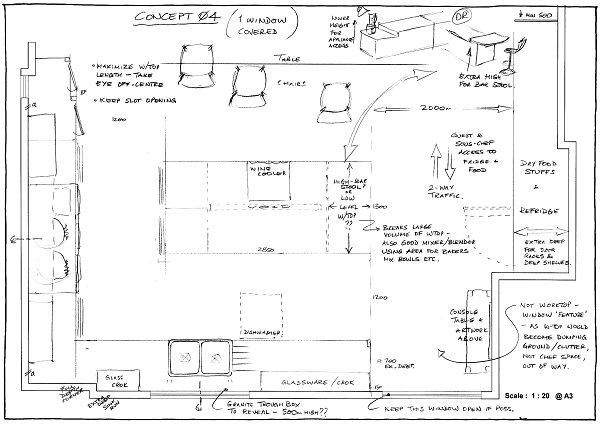 CONCEPT 04
(1 WINDOW
COVERED)
LOWER
HEIGHT
FOR
APPLIANCE
ACCESS
OR
EXTRA HIGH
FOR BAR STOOL.
• MAXIMIZE W/TOP
LENGTH - TAKE
EYE OFF-CENTRE
• KEEP SLOT OPENING
TABLE
CHAIRS
1200
2000
WINE
COOLER
HIGH-BAR
STOOL?
OR
LOW
LEVEL
W/TOP
??
1300
2800
BREAKS LARGE
VOLUME OF W/TOP -
ALSO GOOD MIXER/BLENDOR
USING AREA FOR BAKERS
MIX BOWLS ETC.
GUEST &
SOUS-CHEF
ACCESS TO
FRIDGE &
FOOD
2-WAY
TRAFFIC.
DRY FOOD
STUFFS
&
REFRIDGE
EXTRA DEEP
FOR DOOR
RACKS &
DEEP SHELVES.
1200
DISHWASHER
CONSOLE
TABLE &
ARTWORK
ABOVE
NOT WORKTOP -
WINDOW 'FEATURE'
- AS W-TOP WOULD
BECOME DUMPING
GROUND/CLUTTER,
NOT CHEF SPACE,
OUT OF WAY.
700
EX. DEEP.
GLASS
CROK
GLASSWARE / CROK
FULL
DEPTH
CORNER
GRANITE TROUGH BOX
TO REVEAL - 500m HIGH??
KEEP THIS WINDOW OPEN IF POSS.
Scale : 1 : 20 @ A3